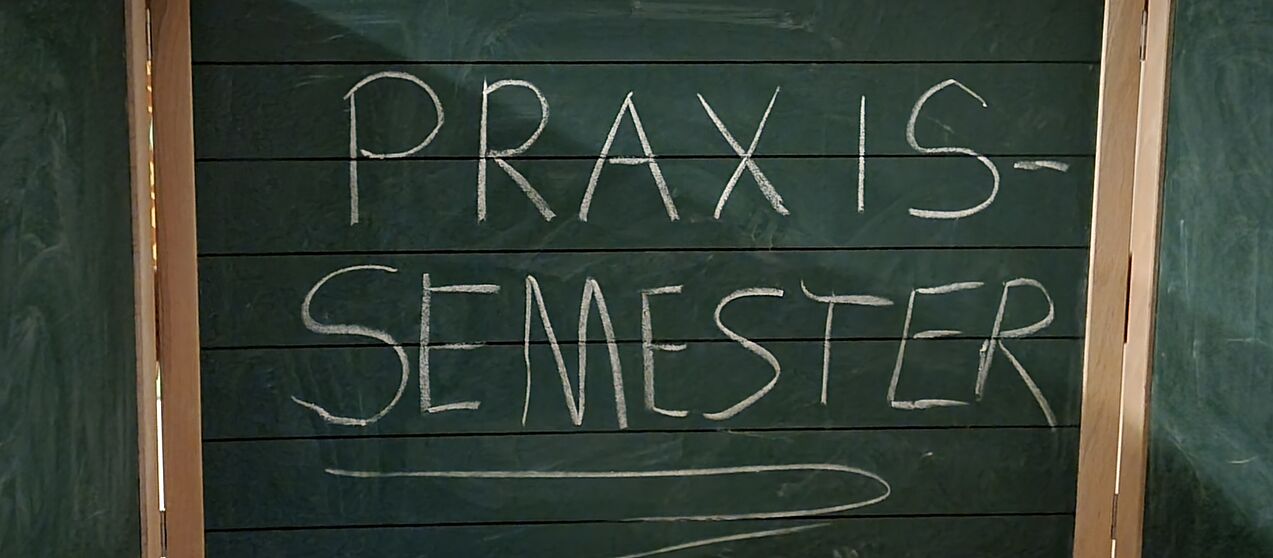 PRAXIS-
SEMESTER